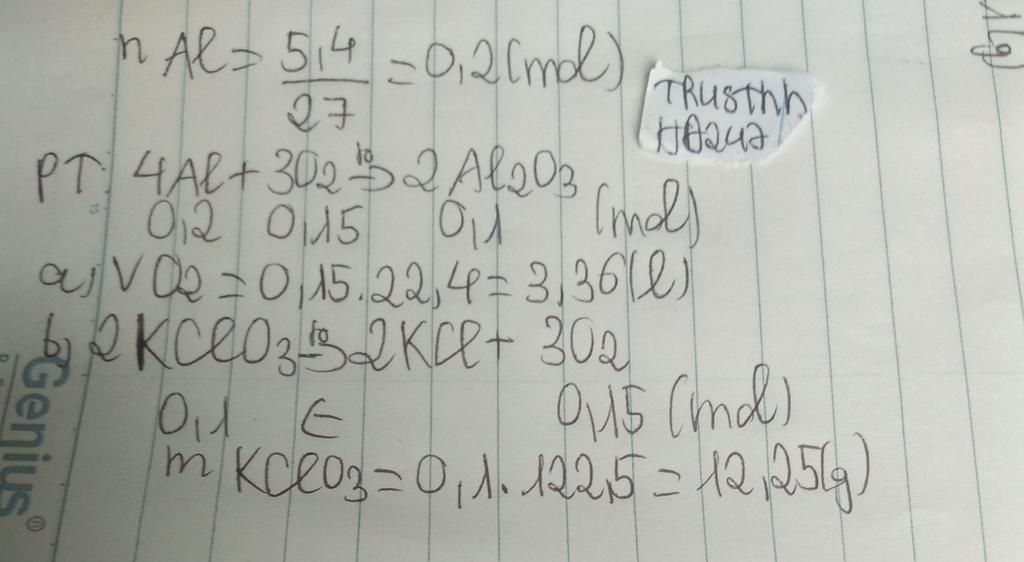 n Al = 5,4/27 = 0,2 (mol)
TRUSThh
HA247
PT: 4Al + 3O2 t° → 2Al2O3
0,2 0,15 0,1 (mol)
a) VO2 = 0,15.22,4 = 3,36 (l)
b) 2KClO3 t° → 2KCl + 3O2
0,1 ← 0,15 (mol)
m KClO3 = 0,1.122,5 = 12,25 (g)
1(g)
Genius®